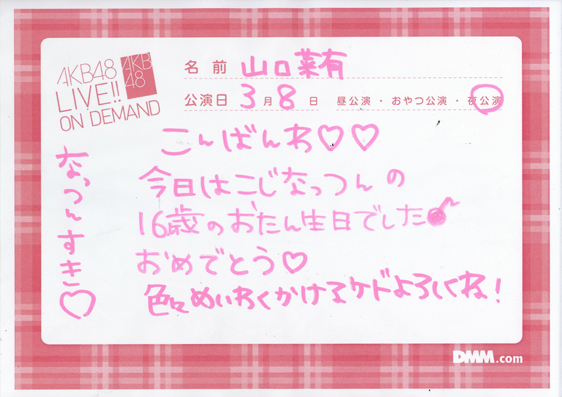 AKB48
LIVE!!
ON DEMAND
AKB
48
名前 山口菜有
公演日 3月8日 昼公演・おやつ公演・夜公演
こんばんわ♡♡
今日はこじなっつんの
16歳のおたん生日でした
おめでとう♡
色々めいわくかけるケドよろしくね!
なっつんすき♡
DMM.com